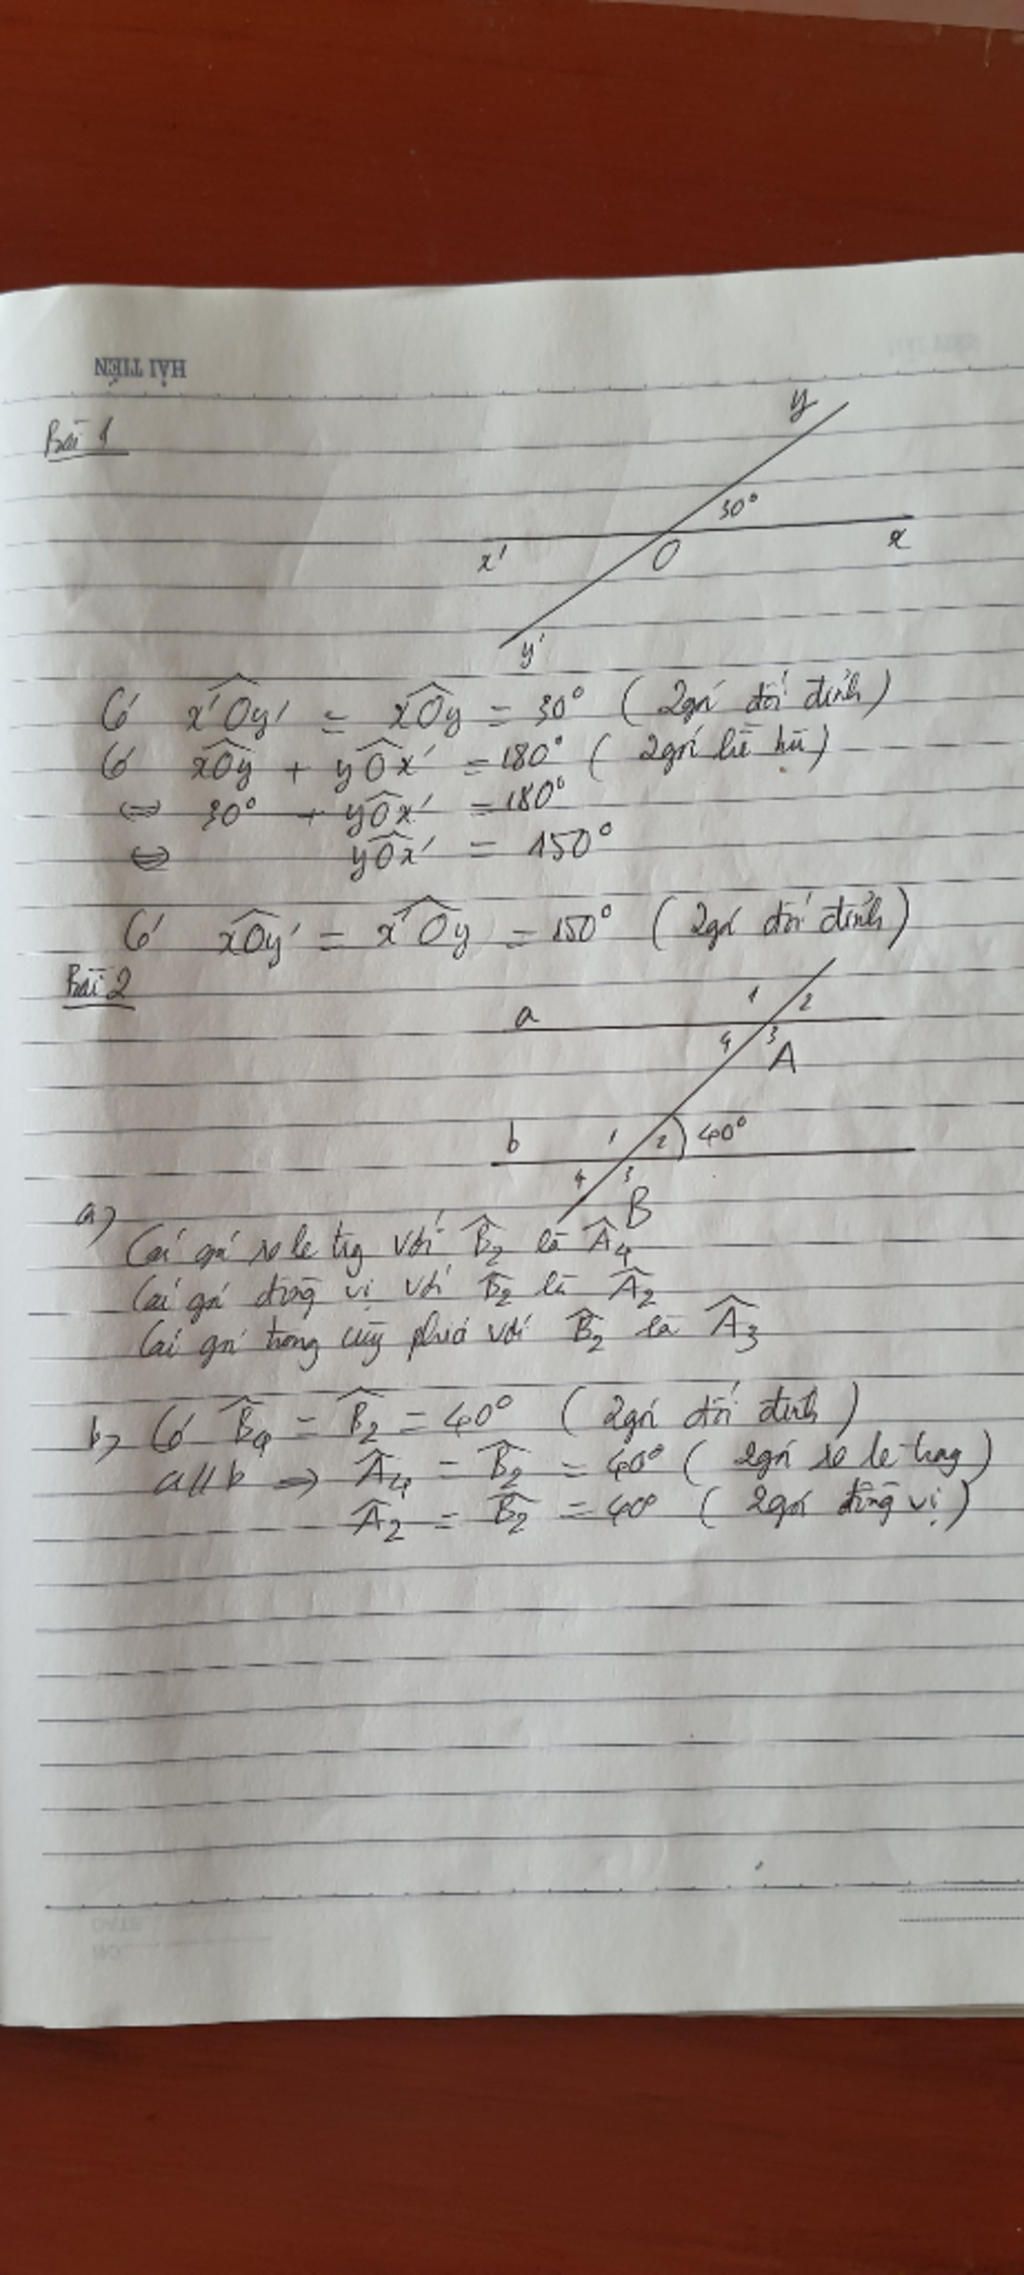 HẢI TIẾN
Bài 1
y
30°
x'
O
x
y'
Có x'Oy' = xOy = 30° (2 góc đối đỉnh)
Có xOy + yOx' = 180° (2 góc kề bù)
⇔ 30° + yOx' = 180°
⇔ yOx' = 150°
Có xOy' = x'Oy = 150° (2 góc đối đỉnh)
Bài 2
a
1 2
4 3
A
b
1 2 40°
4 3
B
a)
Các góc so le trg với B₂ là A₄
Các góc đồng vị với B₂ là A₂
Các góc trong cùng phía với B₂ là A₃
b) Có B₄ = B₂ = 40° (2 góc đối đỉnh)
a//b ⇒ A₄ = B₂ = 40° (2 góc so le trong)
A₂ = B₂ = 40° (2 góc đồng vị)